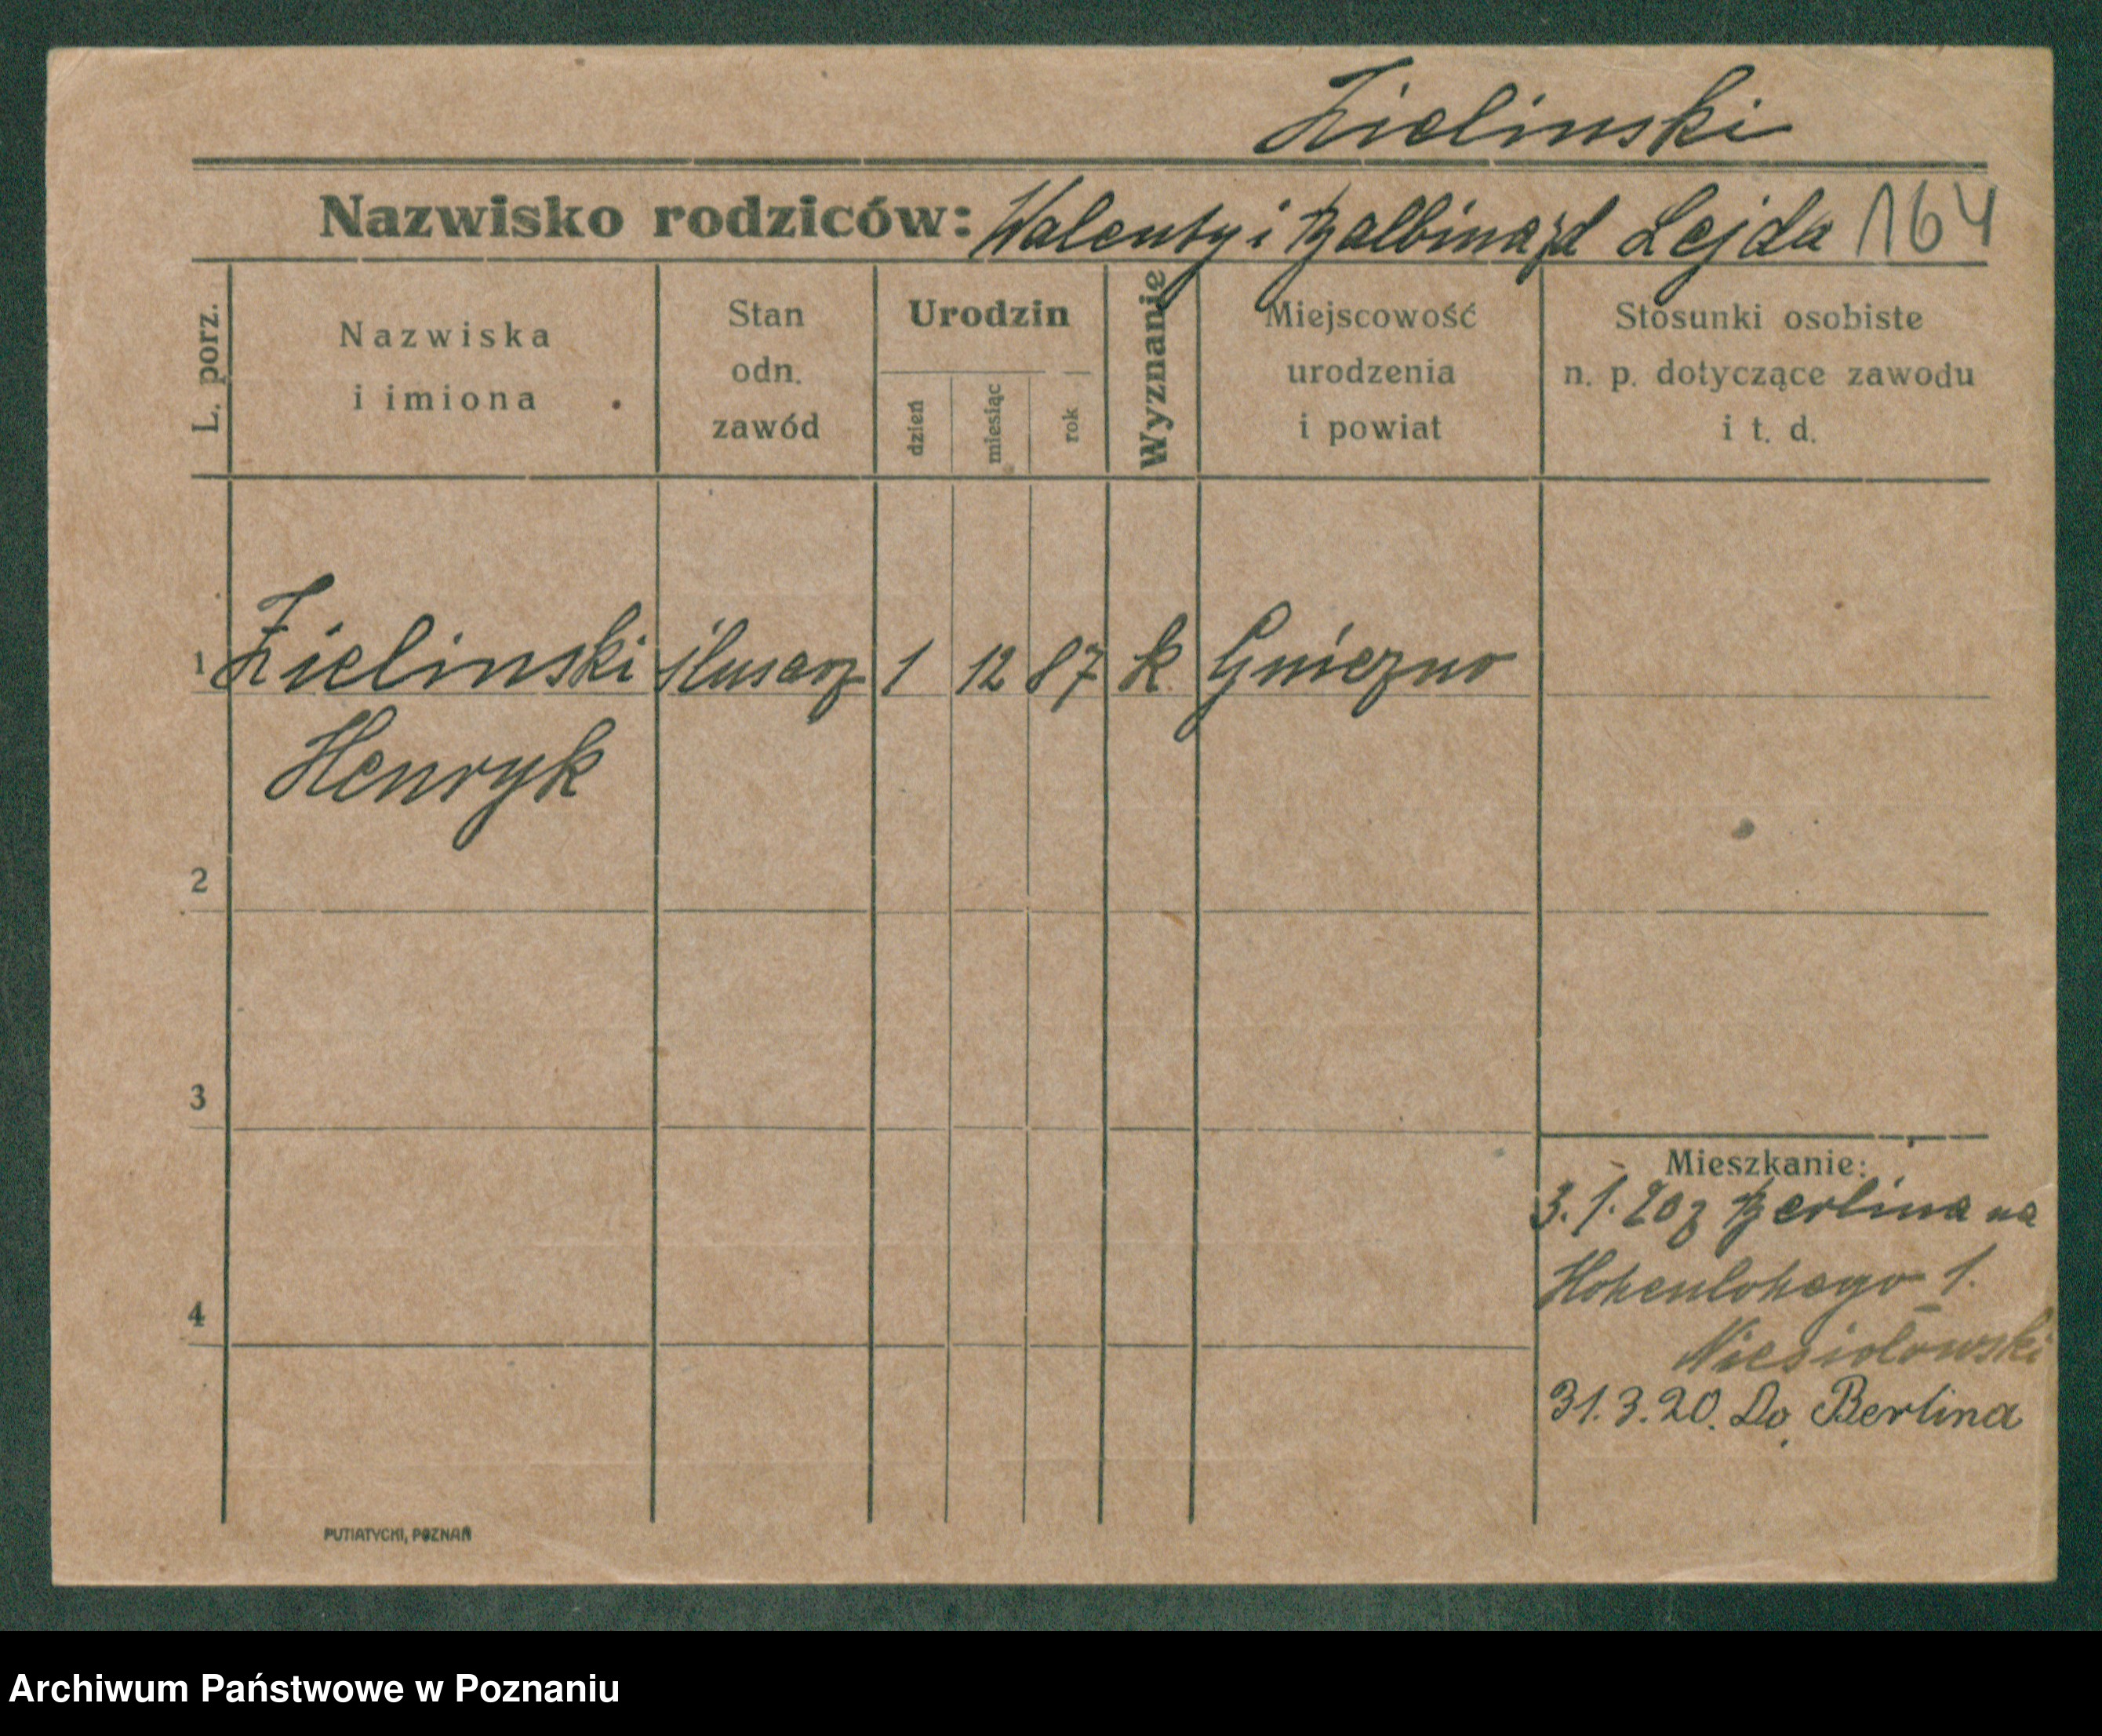 Zielinski
Nazwisko rodziców: Walenty i Balbina zd Lejda 164
L. porz.
Nazwiska
i imiona
Stan
odn.
zawód
Urodzin
dzień
miesiąc
rok
Wyznanie
Miejscowość
urodzenia
i powiat
Stosunki osobiste
n. p. dotyczące zawodu
i t. d.
1 Zielinski ślusarz 1 12 87 k. Gniezno
Henryk
2
3
4
Mieszkanie:
3.1.20 z Berlina na
Hohenlohego 1.
Niesiolowski
31.3.20. Do Berlina
PUTIATYCKI, POZNAŃ
Archiwum Państwowe w Poznaniu